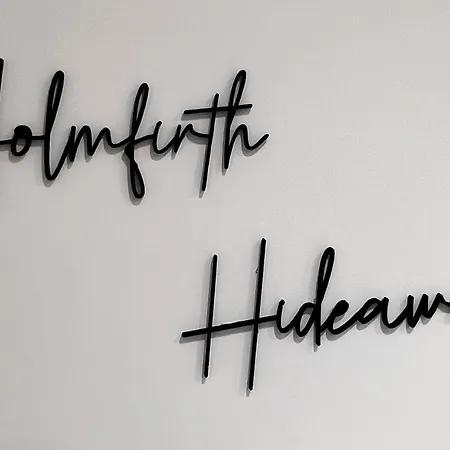 Holmfirth
Hideaw